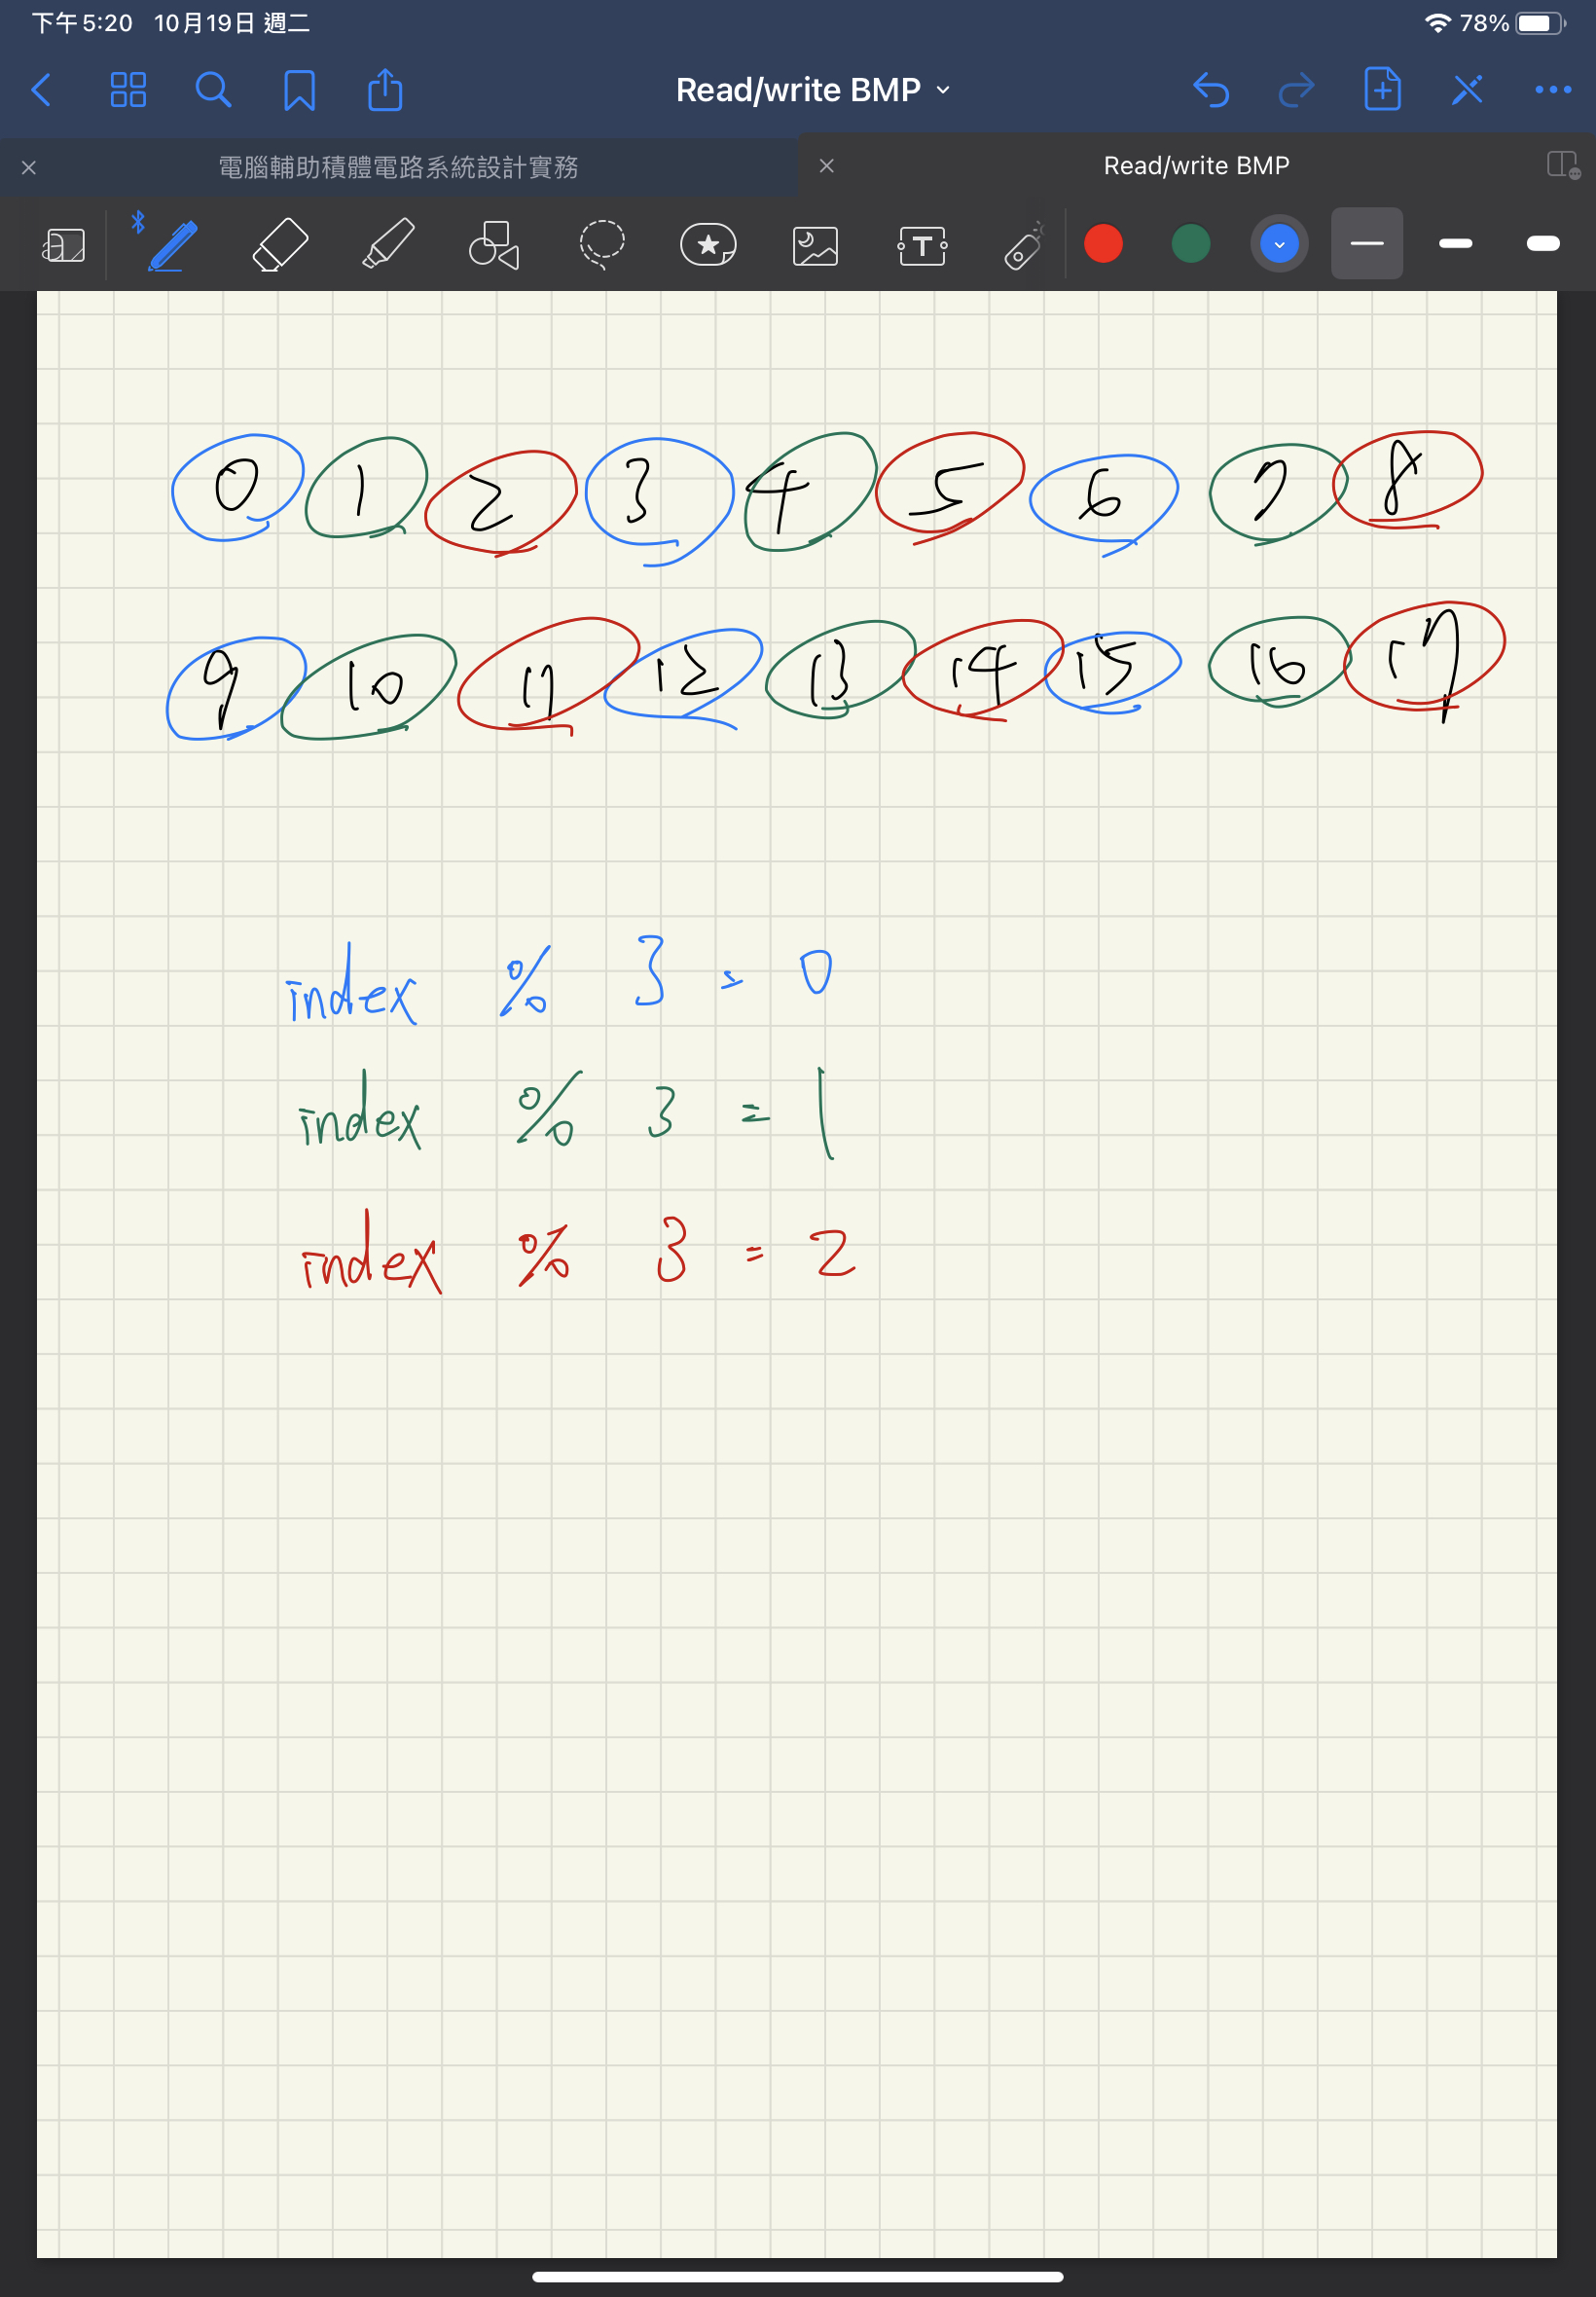 下午5:20 10月19日 週二 78%
Read/write BMP
電腦輔助積體電路系統設計實務 Read/write BMP
0 1 2 3 4 5 6 7 8
9 10 11 12 13 14 15 16 17
index % 3 = 0
index % 3 = 1
index % 3 = 2